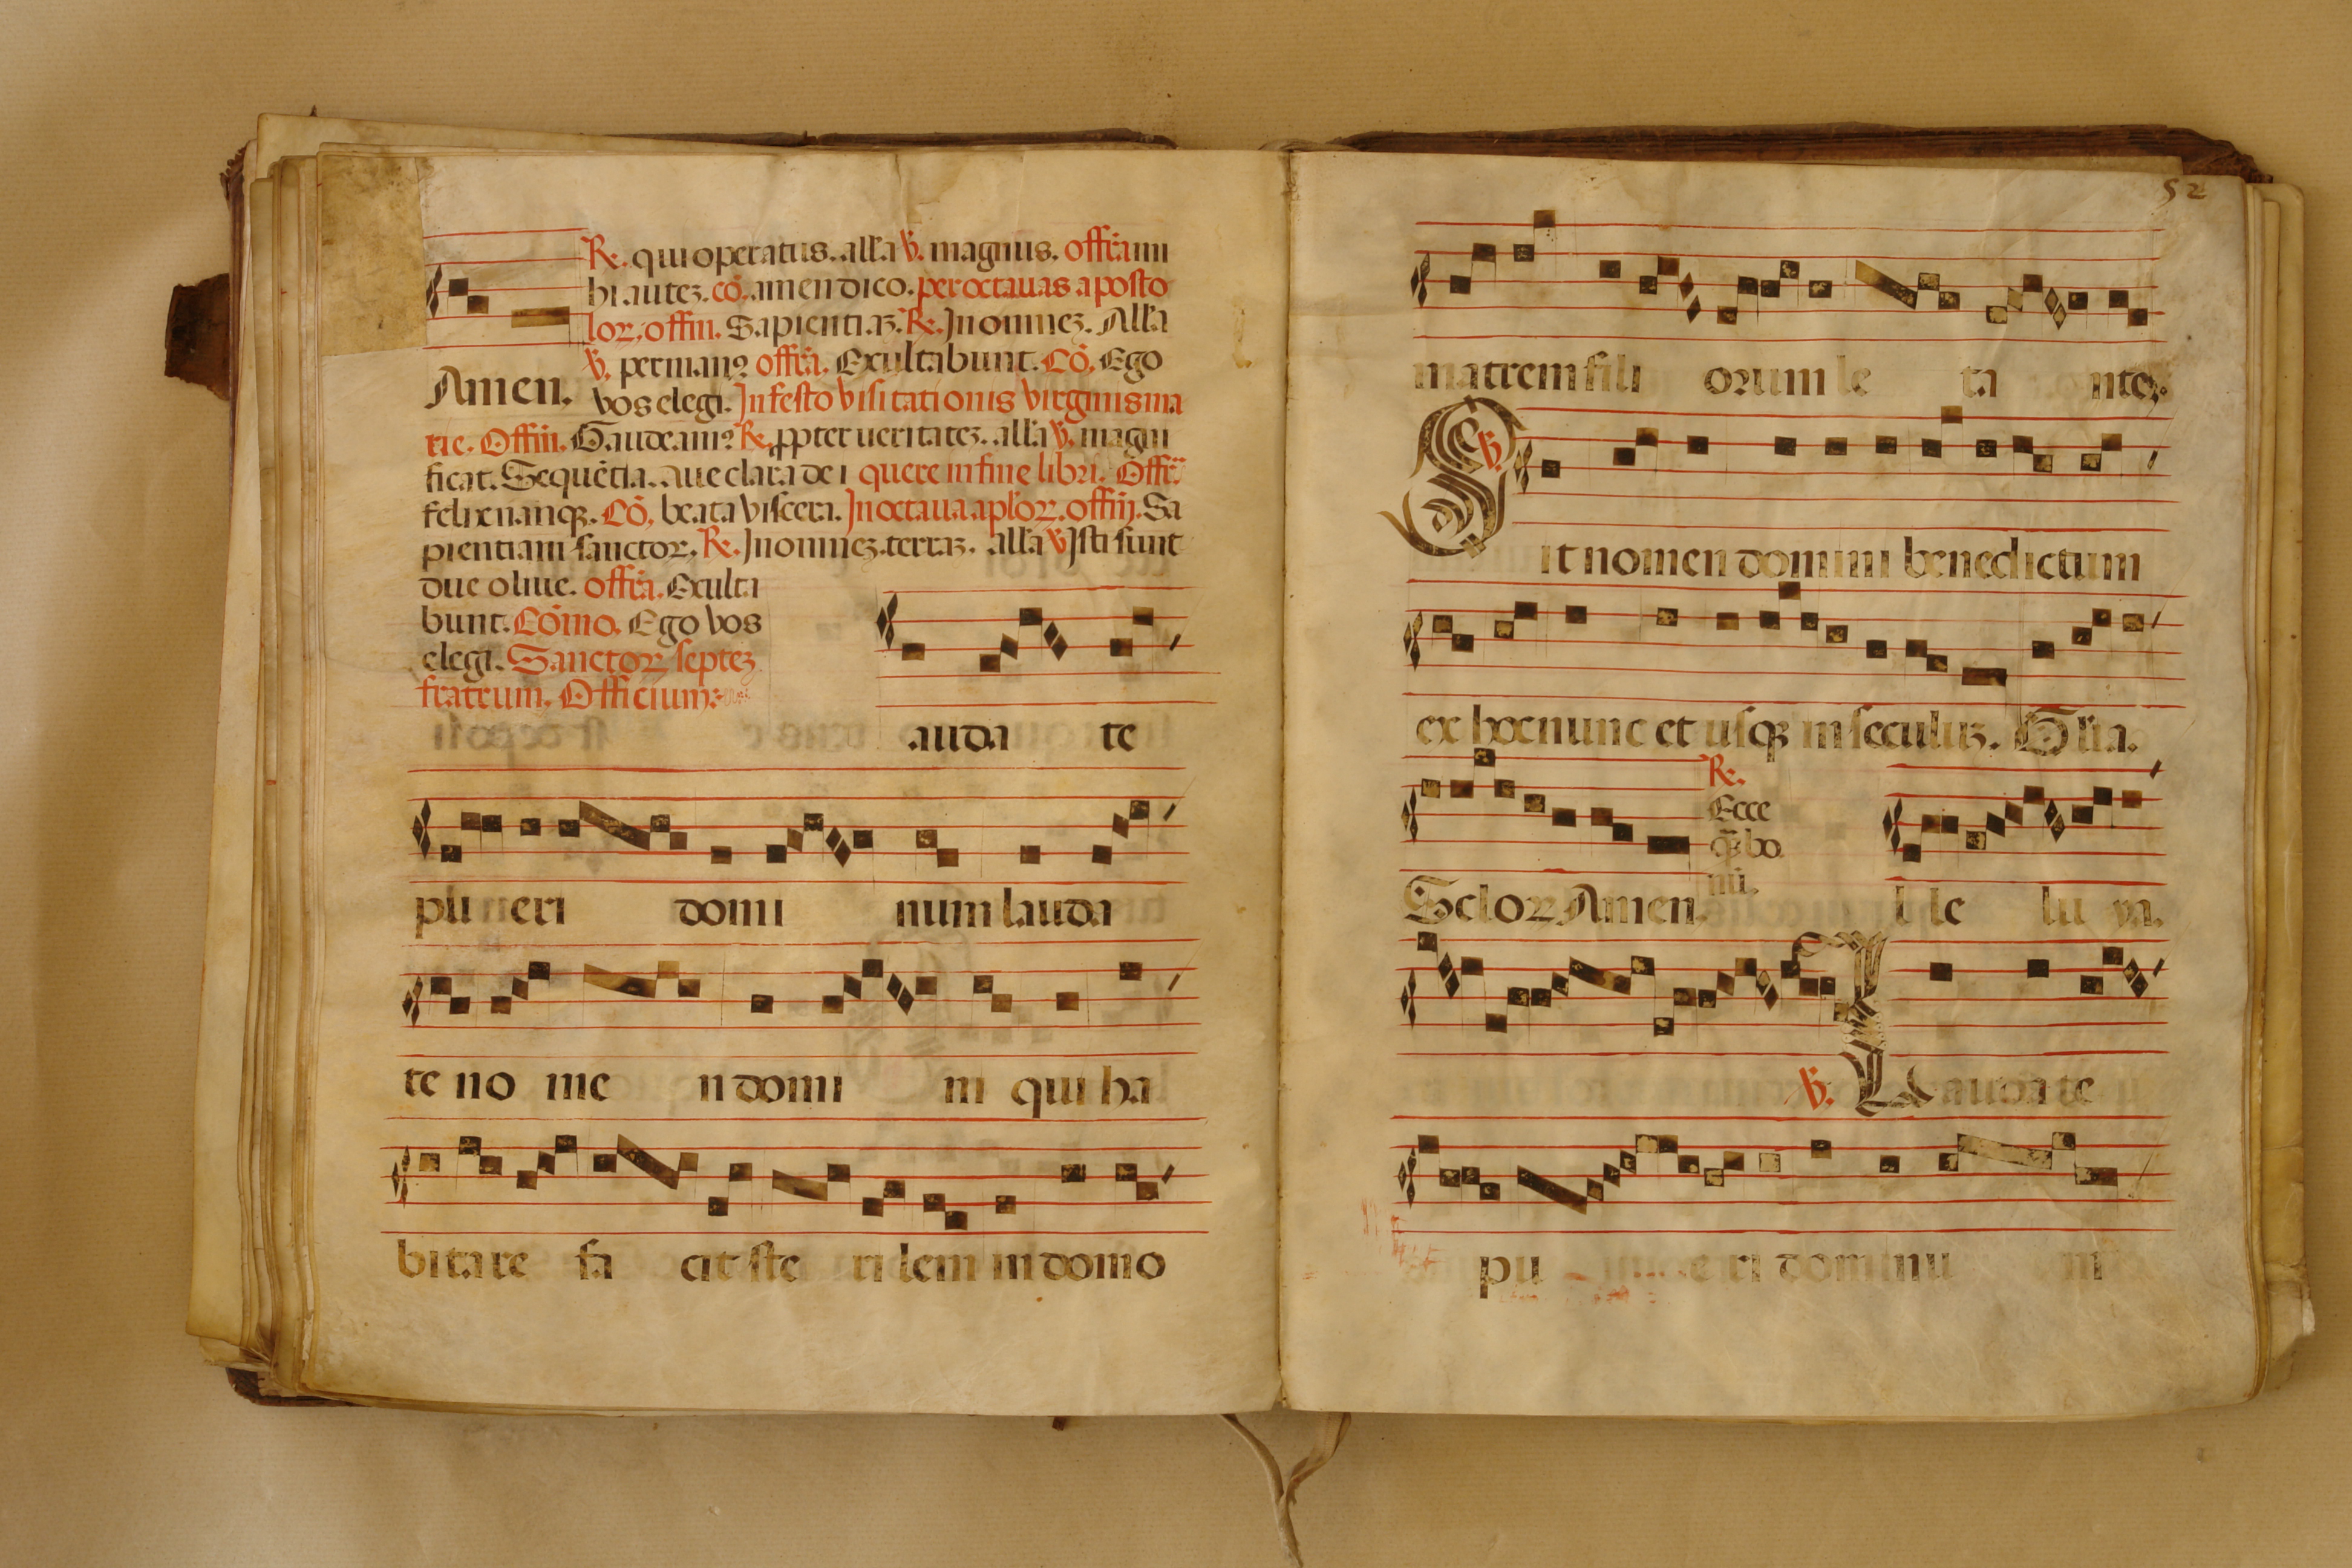 R. qui operatus. alla ℣. magnus. offra. mi
hi autez. cō. amen dico. per octauas aposto
lor. offm. Sapientiaz. R. In omnez. Alla
℣. perman9 offra. Exultabunt. Cō. Ego
Amen. vos elegi. In festo visitationis virginis ma
rie. Offm. Gaudeam9 R. ppter ueritatez. alla ℣. magni
ficat. Sequētia. Aue clara dei quere in fine libri. Offr.
felix nanq3. Cō. beata viscera. In octaua aplor. offm. Sa
pientiam sanctor. R. In omnez. terraz. alla ℣ Isti sunt
due oliue. offra. Exulta
bunt. Cōmo. Ego vos
elegi. Sanctor septez
fratrum. Officium:
auda te
pu eri domi num lauda
te no me n domi ni qui ha
bitare fa cit ste rilem in domo
52
matrem fili orum le ta nte.
S ℣.
it nomen domini benedictum
ex hoc nunc et usq3 in seculuz. Glia.
R.
Ecce
q3 bo
nū.
Sclor Amen. l le lu ya.
℣. Laudate
pu eri dominu m